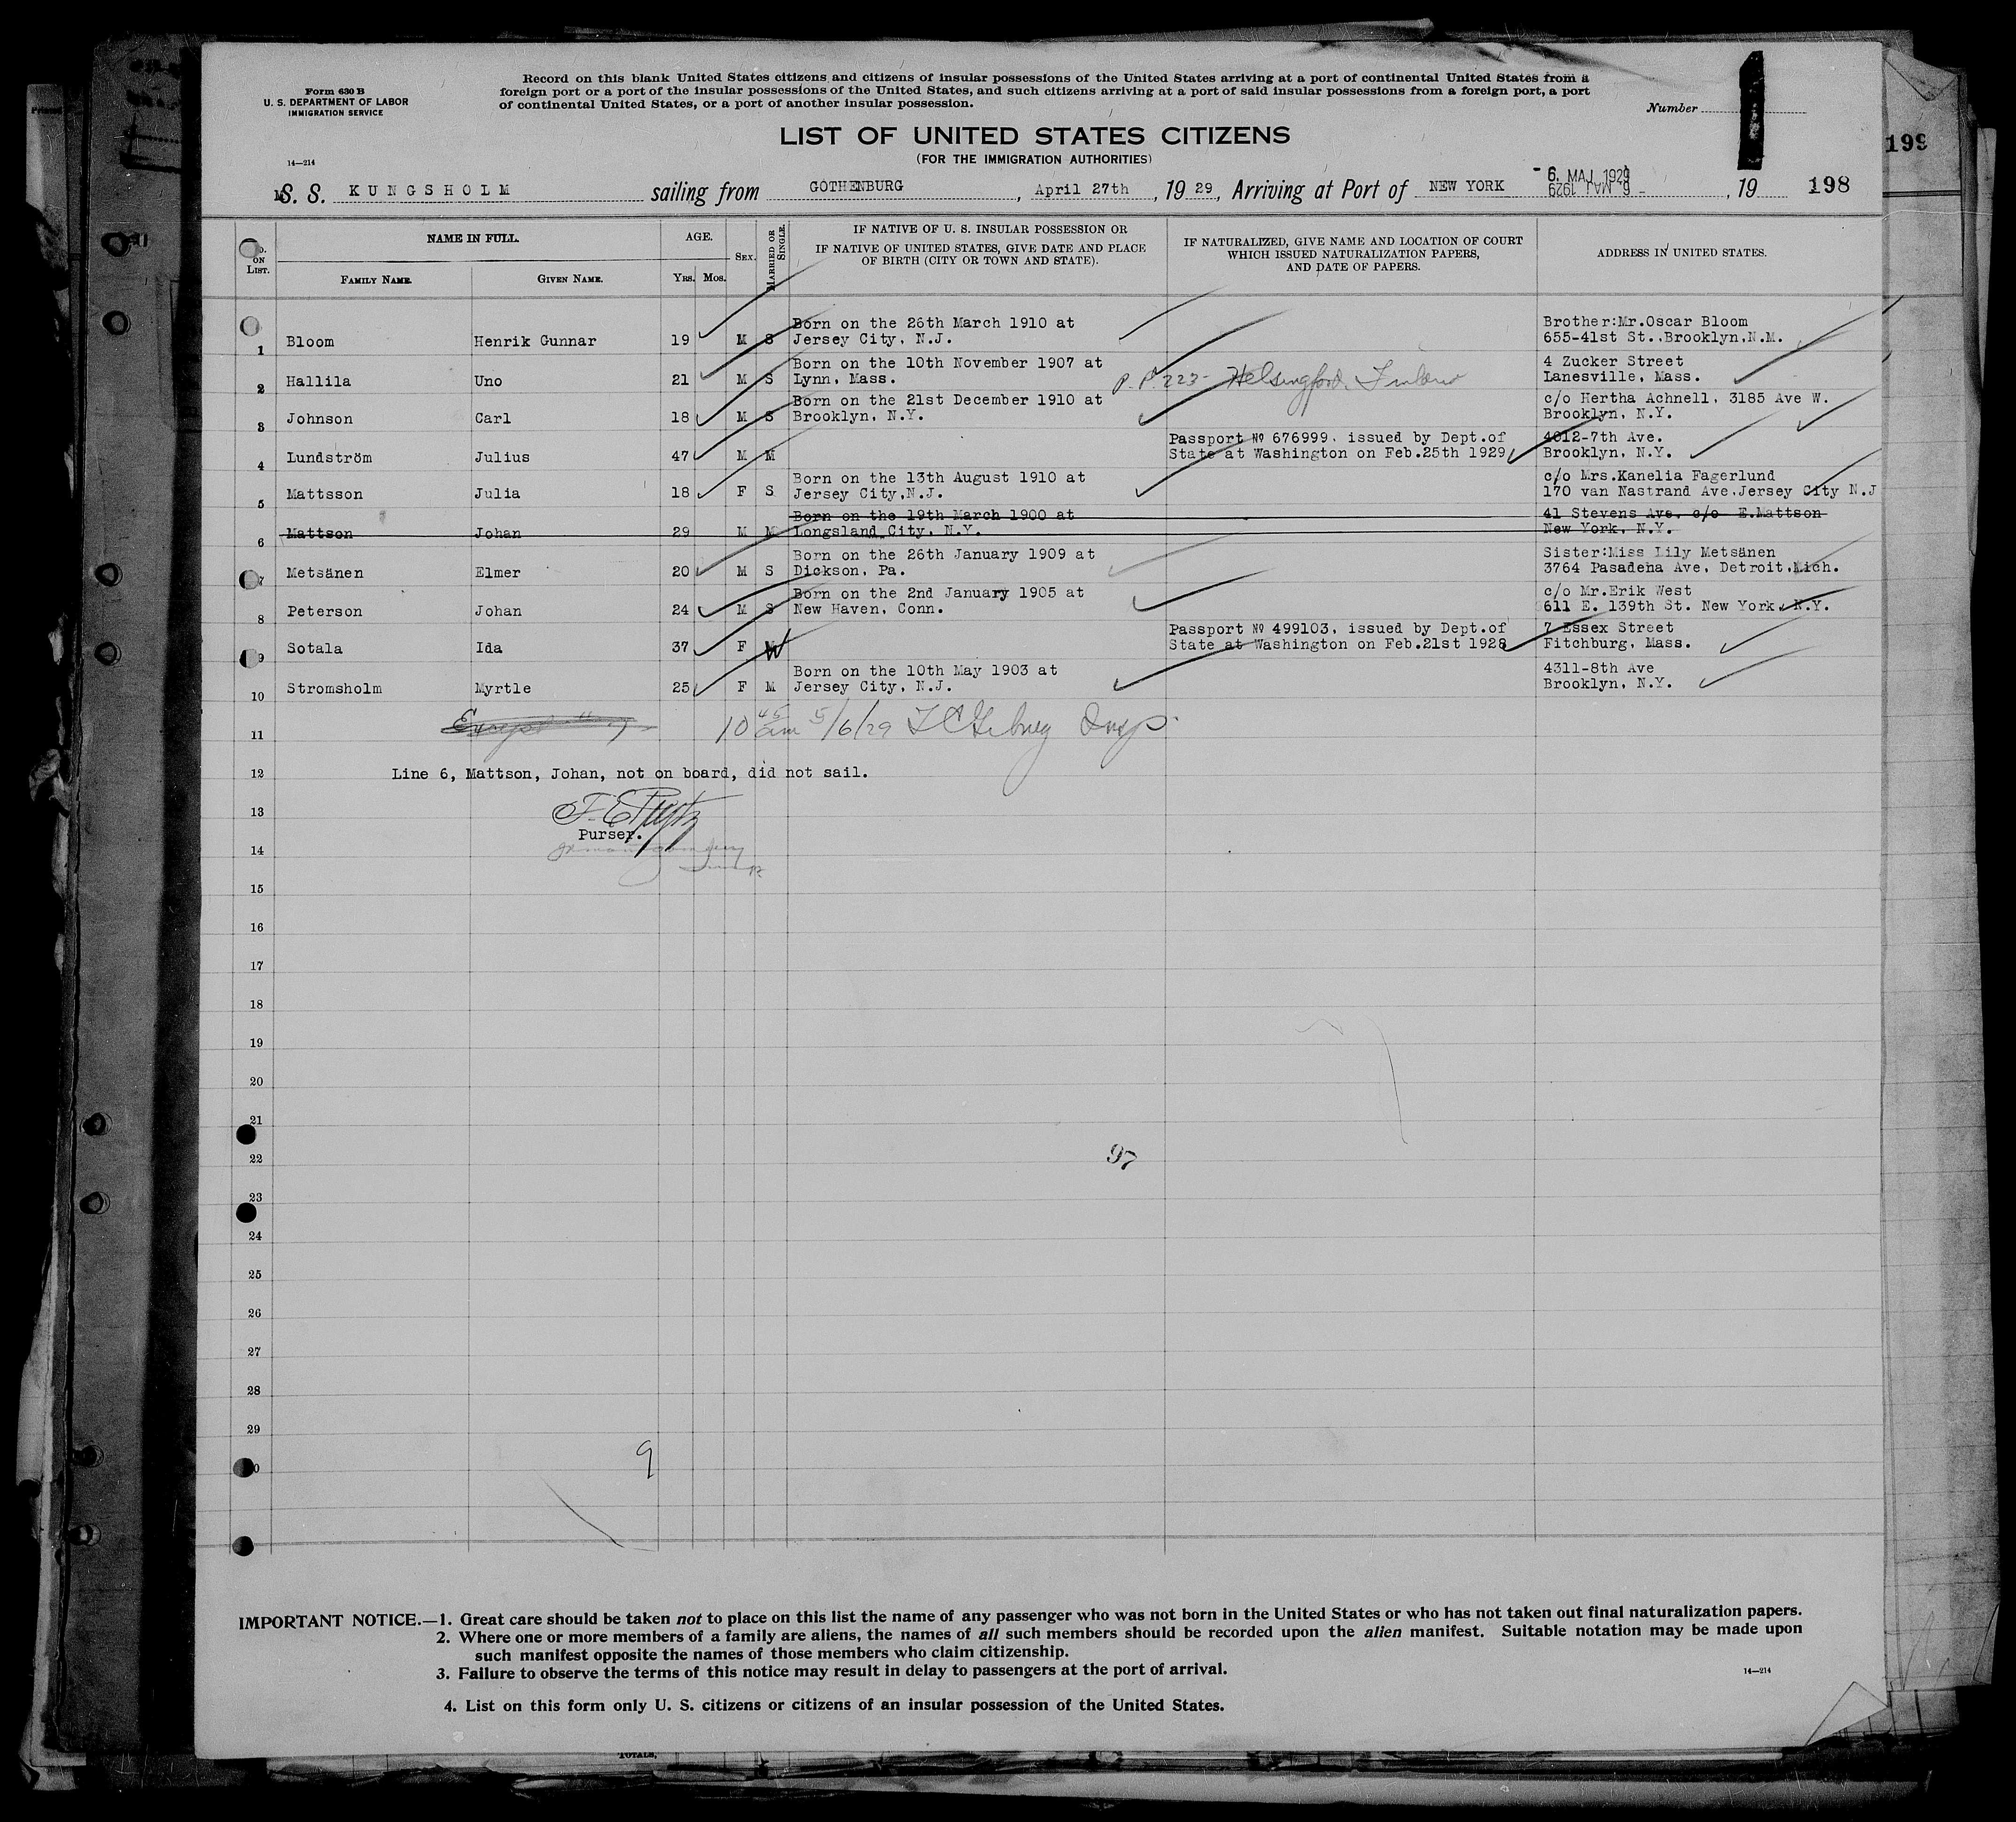 Form 630 B
U. S. DEPARTMENT OF LABOR
IMMIGRATION SERVICE
Record on this blank United States citizens and citizens of insular possessions of the United States arriving at a port of continental United States from a
foreign port or a port of the insular possessions of the United States, and such citizens arriving at a port of said insular possessions from a foreign port, a port
of continental United States, or a port of another insular possession.
Number
199
LIST OF UNITED STATES CITIZENS
(FOR THE IMMIGRATION AUTHORITIES)
14—214
M S. S. KUNGSHOLM sailing from GOTHENBURG, April 27th, 19 29, Arriving at Port of NEW YORK - 6. MAJ 1929 - 6. MAJ 1929, 19 198
NO. ON LIST.
NAME IN FULL.
FAMILY NAME. GIVEN NAME.
AGE.
YRS. MOS.
SEX.
MARRIED OR SINGLE.
IF NATIVE OF U. S. INSULAR POSSESSION OR
IF NATIVE OF UNITED STATES, GIVE DATE AND PLACE
OF BIRTH (CITY OR TOWN AND STATE).
IF NATURALIZED, GIVE NAME AND LOCATION OF COURT
WHICH ISSUED NATURALIZATION PAPERS,
AND DATE OF PAPERS.
ADDRESS IN UNITED STATES.
Born on the 26th March 1910 at Brother:Mr.Oscar Bloom
1 Bloom Henrik Gunnar 19 M S Jersey City, N.J. 655-41st St..Brooklyn.N.M.
Born on the 10th November 1907 at 4 Zucker Street
2 Hallila Uno 21 M S Lynn, Mass. P.P. 223- Helsingfors, Finland Lanesville, Mass.
Born on the 21st December 1910 at c/o Hertha Achnell, 3185 Ave W.
3 Johnson Carl 18 M S Brooklyn, N.Y. Brooklyn, N.Y.
Passport № 676999, issued by Dept.of 4012-7th Ave.
4 Lundström Julius 47 M M State at Washington on Feb.25th 1929 Brooklyn, N.Y.
Born on the 13th August 1910 at c/o Mrs.Kanelia Fagerlund
5 Mattsson Julia 18 F S Jersey City,N.J. 170 van Nastrand Ave.Jersey City N.J
Born on the 19th March 1900 at 41 Stevens Ave. c/o E.Mattson
6 Mattson Johan 29 M M Longsland City, N.Y. New York, N.Y.
Born on the 26th January 1909 at Sister:Miss Lily Metsänen
7 Metsänen Elmer 20 M S Dickson, Pa. 3764 Pasadena Ave, Detroit,Mich.
Born on the 2nd January 1905 at c/o Mr.Erik West
8 Peterson Johan 24 M S New Haven, Conn. 611 E. 139th St. New York, N.Y.
Passport № 499103, issued by Dept.of 7 Essex Street
9 Sotala Ida 37 F W State at Washington on Feb.21st 1928 Fitchburg, Mass.
Born on the 10th May 1903 at 4311-8th Ave
10 Stromsholm Myrtle 25 F M Jersey City, N.J. Brooklyn, N.Y.
11 10 45 am 5/6/29 Insp.
12 Line 6, Mattson, Johan, not on board, did not sail.
13
Purser.
14
15
16
17
18
19
20
21
22
97
23
24
25
26
27
28
29
9
30
IMPORTANT NOTICE.—1. Great care should be taken not to place on this list the name of any passenger who was not born in the United States or who has not taken out final naturalization papers.
2. Where one or more members of a family are aliens, the names of all such members should be recorded upon the alien manifest. Suitable notation may be made upon
such manifest opposite the names of those members who claim citizenship.
3. Failure to observe the terms of this notice may result in delay to passengers at the port of arrival.
14—214
4. List on this form only U. S. citizens or citizens of an insular possession of the United States.
TOTALS,